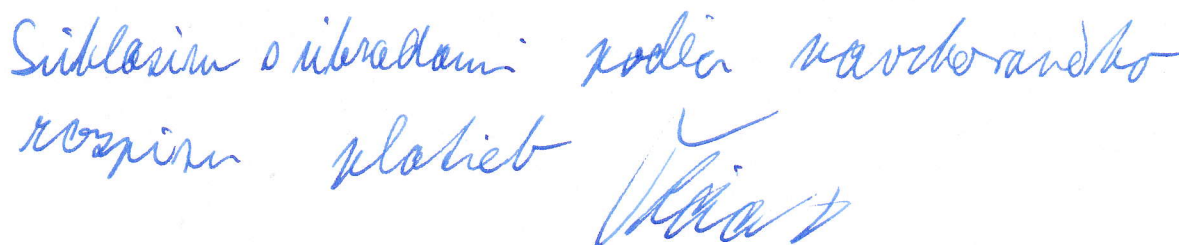 Súhlasím s úhradami podľa navrhovaného
rozpisu platieb